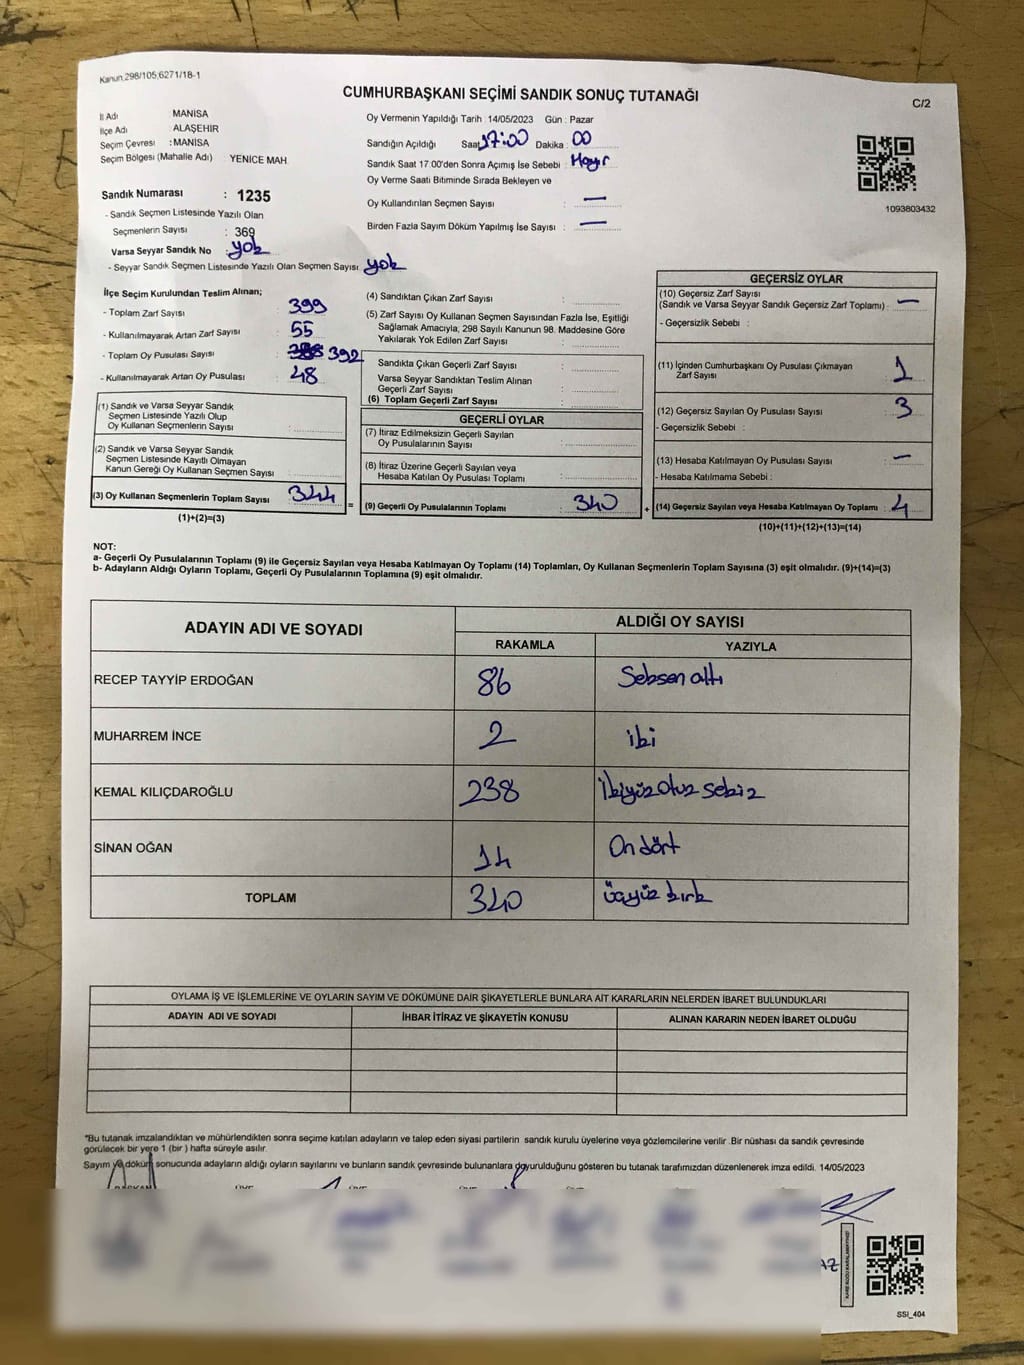 Kanun.298/105,6271/18-1
CUMHURBAŞKANI SEÇİMİ SANDIK SONUÇ TUTANAĞI
C/2
İl Adı MANİSA
İlçe Adı ALAŞEHİR
Seçim Çevresi : MANİSA
Seçim Bölgesi (Mahalle Adı) YENİCE MAH.
Oy Vermenin Yapıldığı Tarih : 14/05/2023 Gün : Pazar
Sandığın Açıldığı Saat 17:00 Dakika : 00
Sandık Saat 17:00'den Sonra Açımış İse Sebebi : Hayır
Oy Verme Saati Bitiminde Sırada Bekleyen ve
Oy Kullandırılan Seçmen Sayısı : —
Birden Fazla Sayım Döküm Yapılmış İse Sayısı : —
1093803432
Sandık Numarası : 1235
- Sandık Seçmen Listesinde Yazılı Olan
Seçmenlerin Sayısı : 369
Varsa Seyyar Sandık No : yok
- Seyyar Sandık Seçmen Listesinde Yazılı Olan Seçmen Sayısı : yok
İlçe Seçim Kurulundan Teslim Alınan;
- Toplam Zarf Sayısı : 399
- Kullanılmayarak Artan Zarf Sayısı : 55
- Toplam Oy Pusulası Sayısı : 392
- Kullanılmayarak Artan Oy Pusulası : 48
(1) Sandık ve Varsa Seyyar Sandık
Seçmen Listesinde Yazılı Olup
Oy Kullanan Seçmenlerin Sayısı :
(2) Sandık ve Varsa Seyyar Sandık
Seçmen Listesinde Kayıtlı Olmayan
Kanun Gereği Oy Kullanan Seçmen Sayısı :
(3) Oy Kullanan Seçmenlerin Toplam Sayısı : 344
(1)+(2)=(3)
=
(4) Sandıktan Çıkan Zarf Sayısı :
(5) Zarf Sayısı Oy Kullanan Seçmen Sayısından Fazla İse, Eşitliği
Sağlamak Amacıyla, 298 Sayılı Kanunun 98. Maddesine Göre
Yakılarak Yok Edilen Zarf Sayısı :
Sandıkta Çıkan Geçerli Zarf Sayısı :
Varsa Seyyar Sandıktan Teslim Alınan
Geçerli Zarf Sayısı :
(6) Toplam Geçerli Zarf Sayısı :
GEÇERLİ OYLAR
(7) İtiraz Edilmeksizin Geçerli Sayılan
Oy Pusulalarının Sayısı :
(8) İtiraz Üzerine Geçerli Sayılan veya
Hesaba Katılan Oy Pusulası Toplamı :
(9) Geçerli Oy Pusulalarının Toplamı : 340
+
GEÇERSİZ OYLAR
(10) Geçersiz Zarf Sayısı
(Sandık ve Varsa Seyyar Sandık Geçersiz Zarf Toplamı) : —
- Geçersizlik Sebebi :
(11) İçinden Cumhurbaşkanı Oy Pusulası Çıkmayan
Zarf Sayısı : 1
(12) Geçersiz Sayılan Oy Pusulası Sayısı : 3
- Geçersizlik Sebebi :
(13) Hesaba Katılmayan Oy Pusulası Sayısı : —
- Hesaba Katılmama Sebebi :
(14) Geçersiz Sayılan veya Hesaba Katılmayan Oy Toplamı : 4
(10)+(11)+(12)+(13)=(14)
NOT:
a- Geçerli Oy Pusulalarının Toplamı (9) ile Geçersiz Sayılan veya Hesaba Katılmayan Oy Toplamı (14) Toplamları, Oy Kullanan Seçmenlerin Toplam Sayısına (3) eşit olmalıdır. (9)+(14)=(3)
b- Adayların Aldığı Oyların Toplamı, Geçerli Oy Pusulalarının Toplamına (9) eşit olmalıdır.
ADAYIN ADI VE SOYADI
ALDIĞI OY SAYISI
RAKAMLA YAZIYLA
RECEP TAYYİP ERDOĞAN 86 Seksen altı
MUHARREM İNCE 2 iki
KEMAL KILIÇDAROĞLU 238 İkiyüz otuz sekiz
SİNAN OĞAN 14 On dört
TOPLAM 340 üçyüz kırk
OYLAMA İŞ VE İŞLEMLERİNE VE OYLARIN SAYIM VE DÖKÜMÜNE DAİR ŞİKAYETLERLE BUNLARA AİT KARARLARIN NELERDEN İBARET BULUNDUKLARI
ADAYIN ADI VE SOYADI İHBAR İTİRAZ VE ŞİKAYETİN KONUSU ALINAN KARARIN NEDEN İBARET OLDUĞU
*Bu tutanak imzalandıktan ve mühürlendikten sonra seçime katılan adayların ve talep eden siyasi partilerin sandık kurulu üyelerine veya gözlemcilerine verilir .Bir nüshası da sandık çevresinde
görülecek bir yere 1 (bir ) hafta süreyle asılır.
Sayım ve döküm sonucunda adayların aldığı oyların sayılarını ve bunların sandık çevresinde bulunanlara duyurulduğunu gösteren bu tutanak tarafımızdan düzenlenerek imza edildi. 14/05/2023
SSI_404